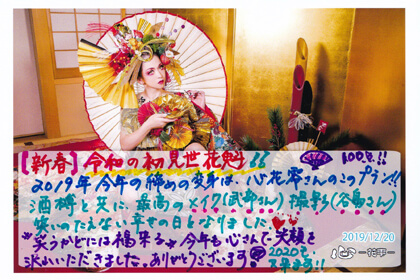 【新春】令和の初見世花魁!!
100点!!
2019年 今年の締めの変身は、心花雫さんのこのプラン!!
酒樽と共に、最高のメイク(武部さん) 撮影(谷島さん)
笑いのたえない幸せの日となりました
※笑うかどには福来る※今年も心さんで笑顔を
沢山いただきました。ありがとうございます
2020も
2019/12/20
心-花雫-